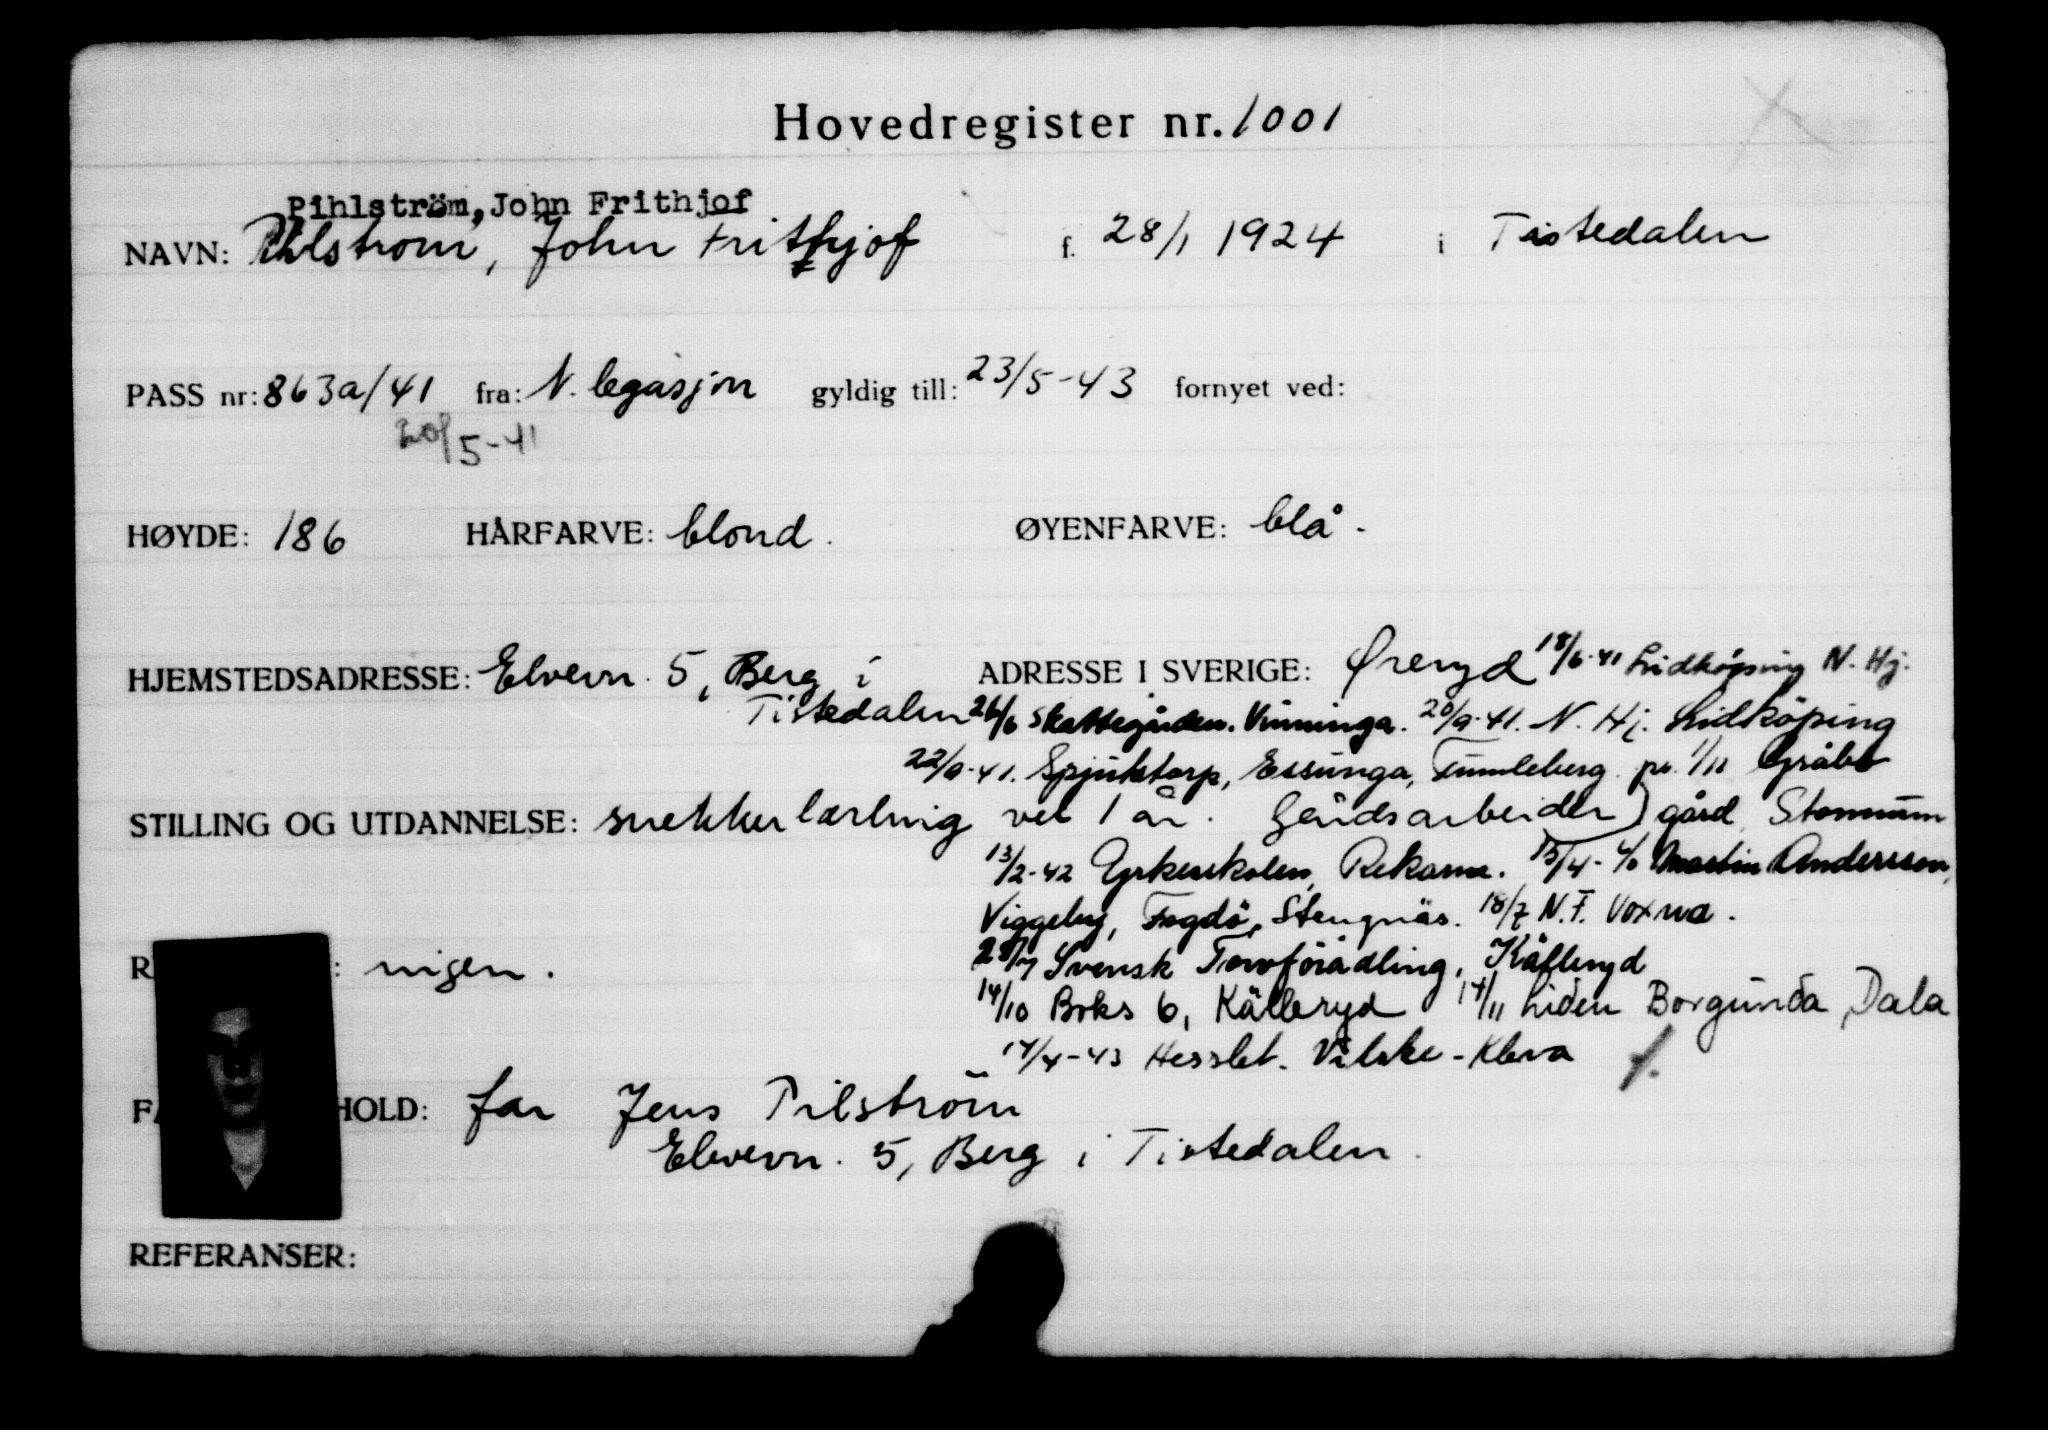 Hovedregister nr. 1001
Pihlström, John Frithjof
NAVN: Pihlstrom, John Frithjof f. 28/1 1924 i Tistedalen
PASS nr: 863a/41 fra: N. legasjon gyldig till: 23/5-43 fornyet ved:
20/5-41
HØYDE: 186 HÅRFARVE: blond. ØYENFARVE: blå.
HJEMSTEDSADRESSE: Elvevn. 5, Berg i ADRESSE I SVERIGE: Øreryd 18/6-41 Lidköping N. Hj.
Tistedalen 26/6 Skattegården. Vinninga. 20/9-41. N. Hj. Lidköping
22/9-41. Spjutstorp, Essunga, Tumleberg pr. 1/11 Gråbo
STILLING OG UTDANNELSE: snekkerlærling vel 1 år. Gårdsarbeider) gård Stomnum
13/2-42 Yrkesskolen, Rekarne. 15/4- Martin Andersson,
Viggeby, Fogdö, Stengnäs. 18/7 N.F. Voxna.
28/7 Svensk Torvförädling, Källeryd
R : ingen.
14/10 Boks 6, Källeryd 14/11 Liden Borgunda, Dala
17/4-43 Hesslet. Vilske-Kleva
FA HOLD: far Jens Pilström
Elvevn. 5, Berg i Tistedalen.
REFERANSER: